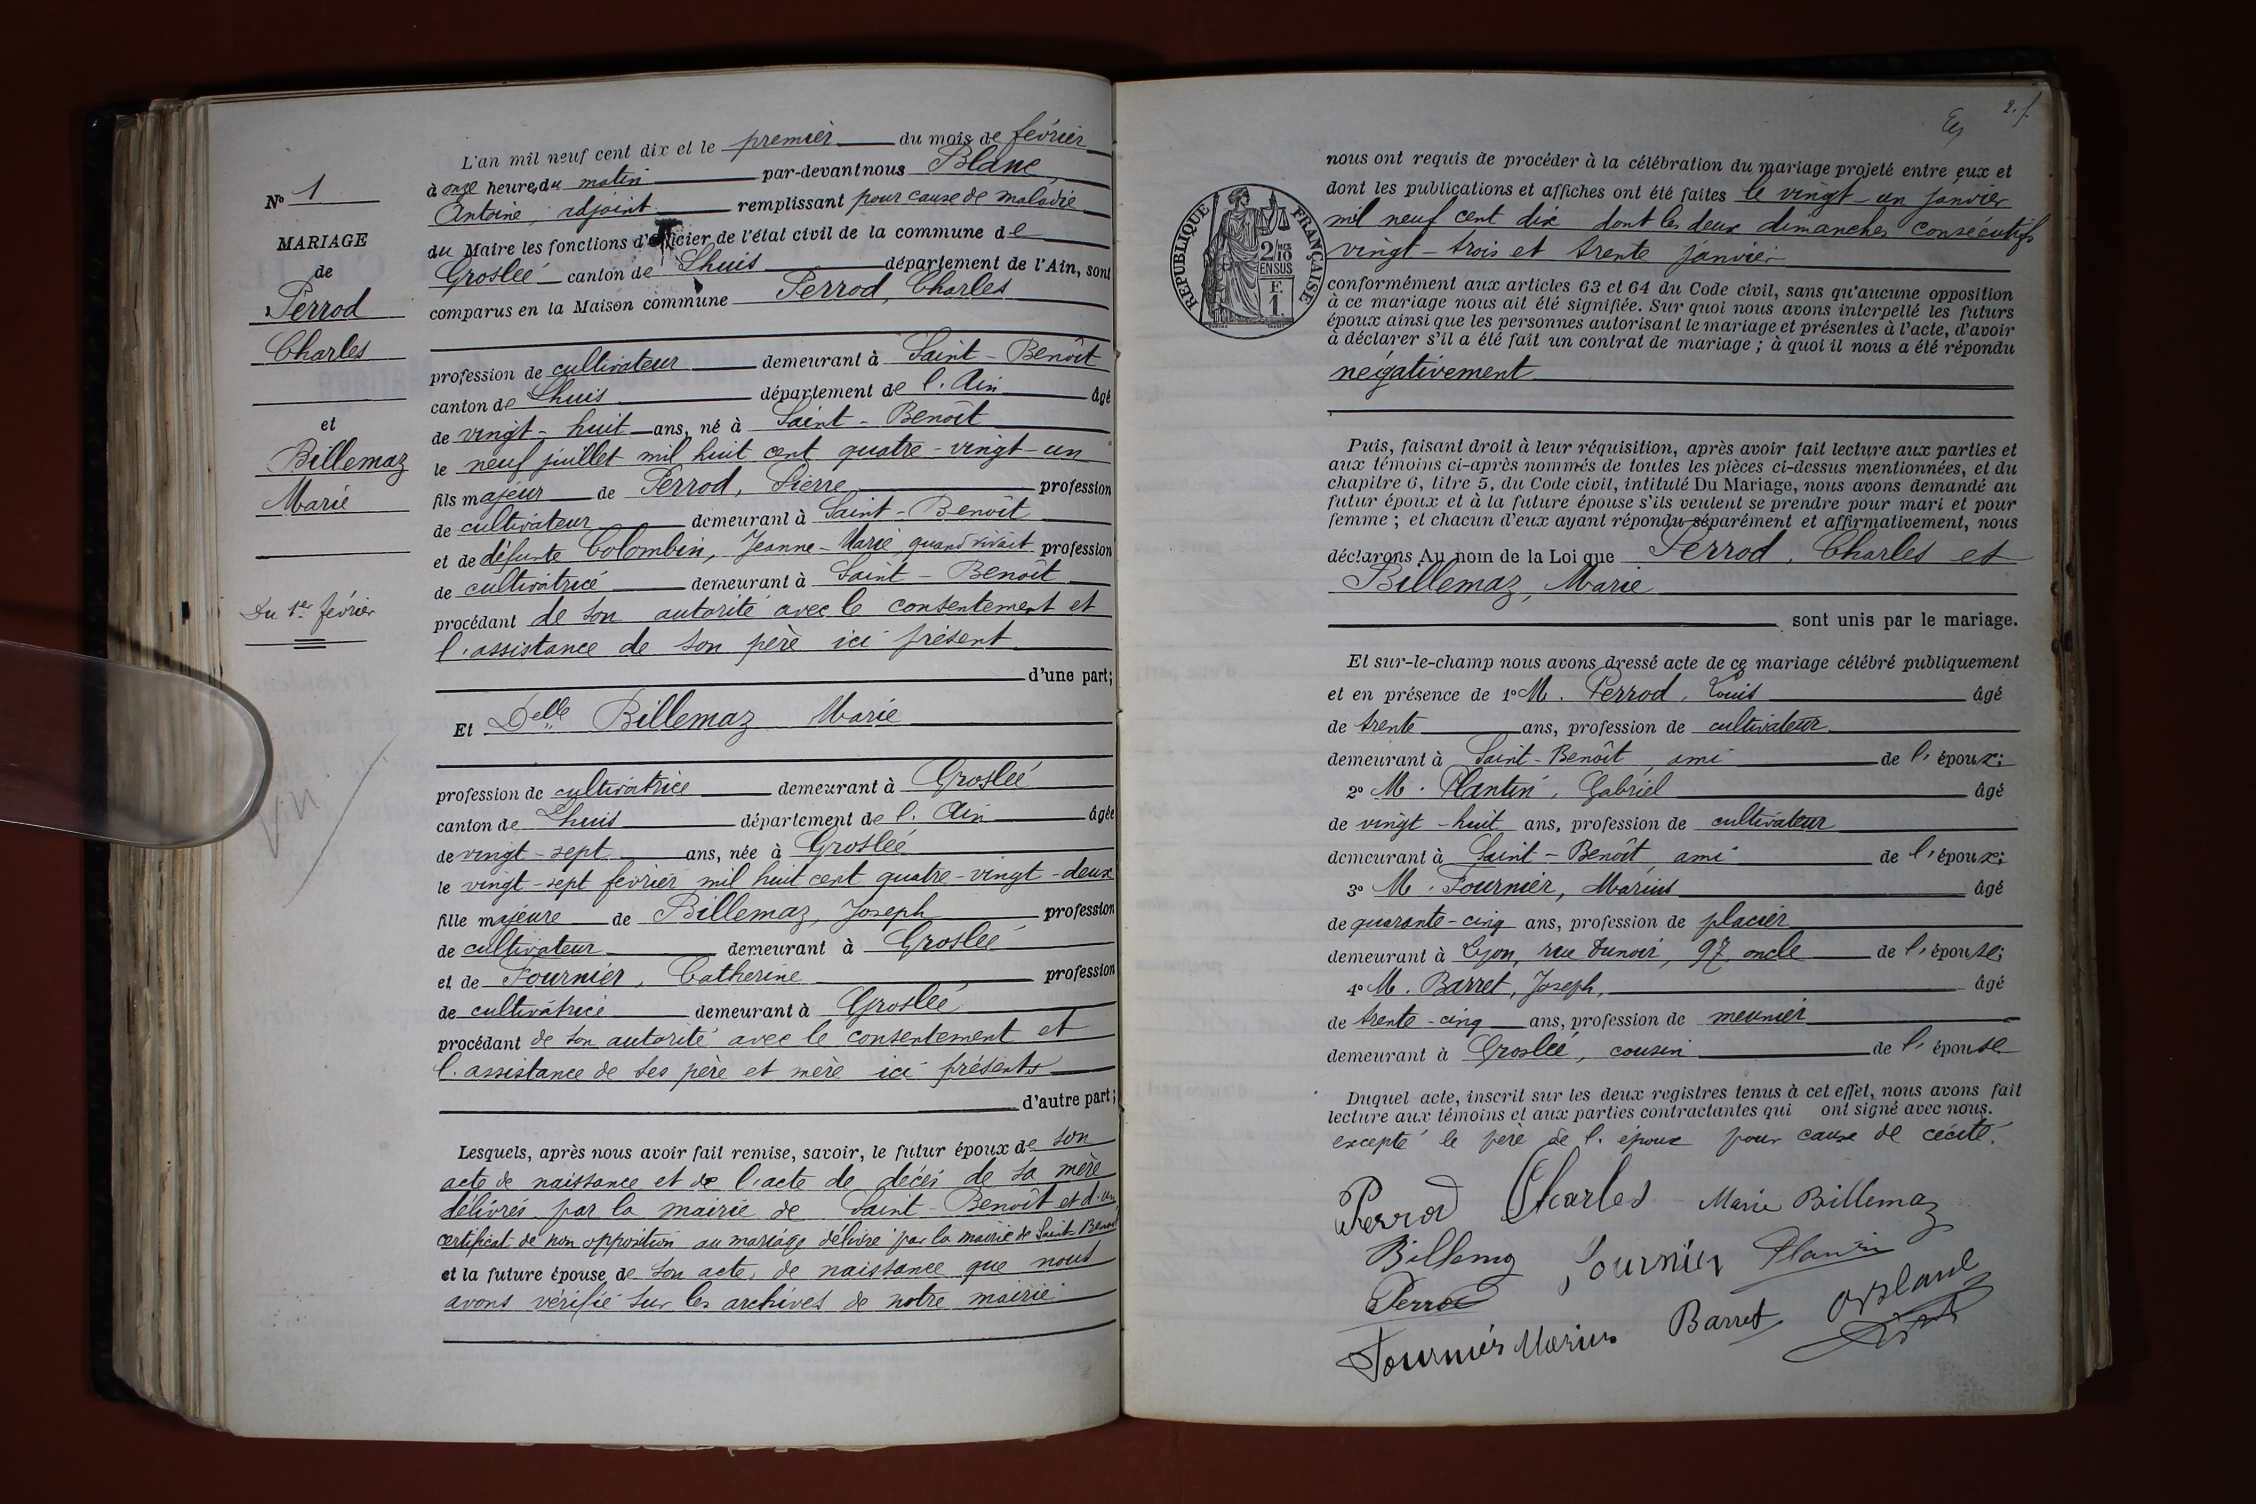 L'an mil neuf cent dix et le premier du mois de février
à onze heures du matin par-devant nous Blanc,
Antoine, adjoint remplissant pour cause de maladie
du Maire les fonctions d'officier de l'état civil de la commune de
Groslée canton de Lhuis département de l'Ain, sont
comparus en la Maison commune Perrod, Charles
profession de cultivateur demeurant à Saint-Benoît
canton de Lhuis département de l'Ain âgé
de vingt-huit ans, né à Saint-Benoît
le neuf juillet mil huit cent quatre-vingt-un
fils majeur de Perrod, Pierre profession
de cultivateur demeurant à Saint-Benoît
et de défunte Colombin, Jeanne-Marie quand vivait profession
de cultivatrice demeurant à Saint-Benoît
procédant de son autorité avec le consentement et
l'assistance de son père ici présent
d'une part;
Et Delle Billemaz Marie
profession de cultivatrice demeurant à Groslée
canton de Lhuis département de l'Ain âgée
de vingt-sept ans, née à Groslée
le vingt-sept février mil huit cent quatre-vingt-deux
fille majeure de Billemaz, Joseph profession
de cultivateur demeurant à Groslée
et de Fournier, Catherine profession
de cultivatrice demeurant à Groslée
procédant de son autorité avec le consentement et
l'assistance de ses père et mère ici présents
d'autre part;
Lesquels, après nous avoir fait remise, savoir, le futur époux de son
acte de naissance et de l'acte de décès de sa mère
délivrés par la mairie de Saint-Benoît et d'un
certificat de non opposition au mariage délivré par la mairie de Saint-Benoît
et la future épouse de son acte de naissance que nous
avons vérifié sur les archives de notre mairie
No 1
MARIAGE
de
Perrod
Charles
et
Billemaz
Marie
Du 1er février
Vu
2. f.
nous ont requis de procéder à la célébration du mariage projeté entre eux et
dont les publications et affiches ont été faites le vingt-un janvier
mil neuf cent dix dont les deux dimanches consécutifs
vingt-trois et trente janvier
conformément aux articles 63 et 64 du Code civil, sans qu'aucune opposition
à ce mariage nous ait été signifiée. Sur quoi nous avons interpellé les futurs
époux ainsi que les personnes autorisant le mariage et présentes à l'acte, d'avoir
à déclarer s'il a été fait un contrat de mariage; à quoi il nous a été répondu
négativement
RÉPUBLIQUE FRANÇAISE
2/10
EN SUS
F.
1.
Puis, faisant droit à leur réquisition, après avoir fait lecture aux parties et
aux témoins ci-après nommés de toutes les pièces ci-dessus mentionnées, et du
chapitre 6, titre 5, du Code civil, intitulé Du Mariage, nous avons demandé au
futur époux et à la future épouse s'ils veulent se prendre pour mari et pour
femme; et chacun d'eux ayant répondu séparément et affirmativement, nous
déclarons Au nom de la Loi que Perrod, Charles et
Billemaz, Marie
sont unis par le mariage.
Et sur-le-champ nous avons dressé acte de ce mariage célébré publiquement
et en présence de 1o M. Perrod, Louis âgé
de trente ans, profession de cultivateur
demeurant à Saint-Benoît, ami de l'époux;
2o M. Plantin, Gabriel âgé
de vingt-huit ans, profession de cultivateur
demeurant à Saint-Benoît, ami de l'époux;
3o M. Fournier, Marius âgé
de quarante-cinq ans, profession de placier
demeurant à Lyon, rue Dunoir, 97 oncle de l'épouse;
4o M. Barret, Joseph, âgé
de trente-cinq ans, profession de meunier
demeurant à Groslée, cousin de l'épouse
Duquel acte, inscrit sur les deux registres tenus à cet effet, nous avons fait
lecture aux témoins et aux parties contractantes qui ont signé avec nous.
excepté le père de l'époux pour cause de cécité.
Perrod Charles Marie Billemaz
Billemaz Fournier Plantin
Perrod
Fournier Marius Barret A Blanc